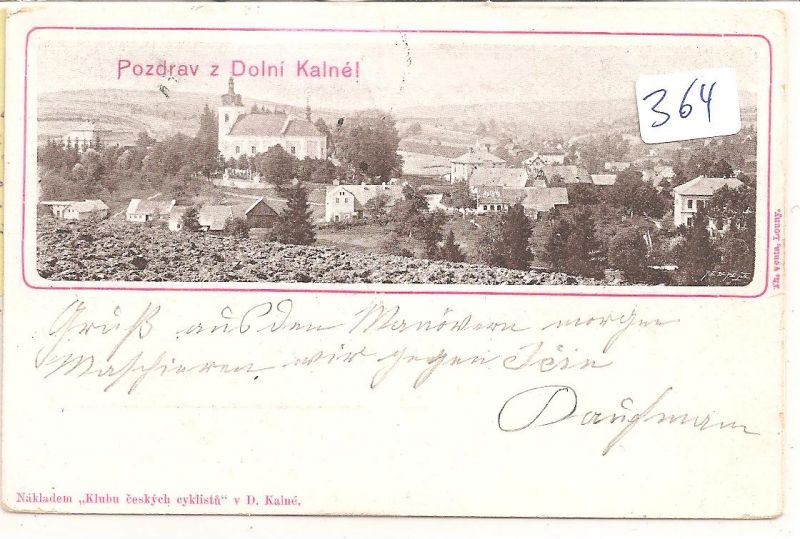 Pozdrav z Dolní Kalné!
364
Th. Venta, Louny.
Gruß aus den Manövern morgen
Maschieren wir gegen Jčin
Nákladem „Klubu českých cyklistů“ v D. Kalné.